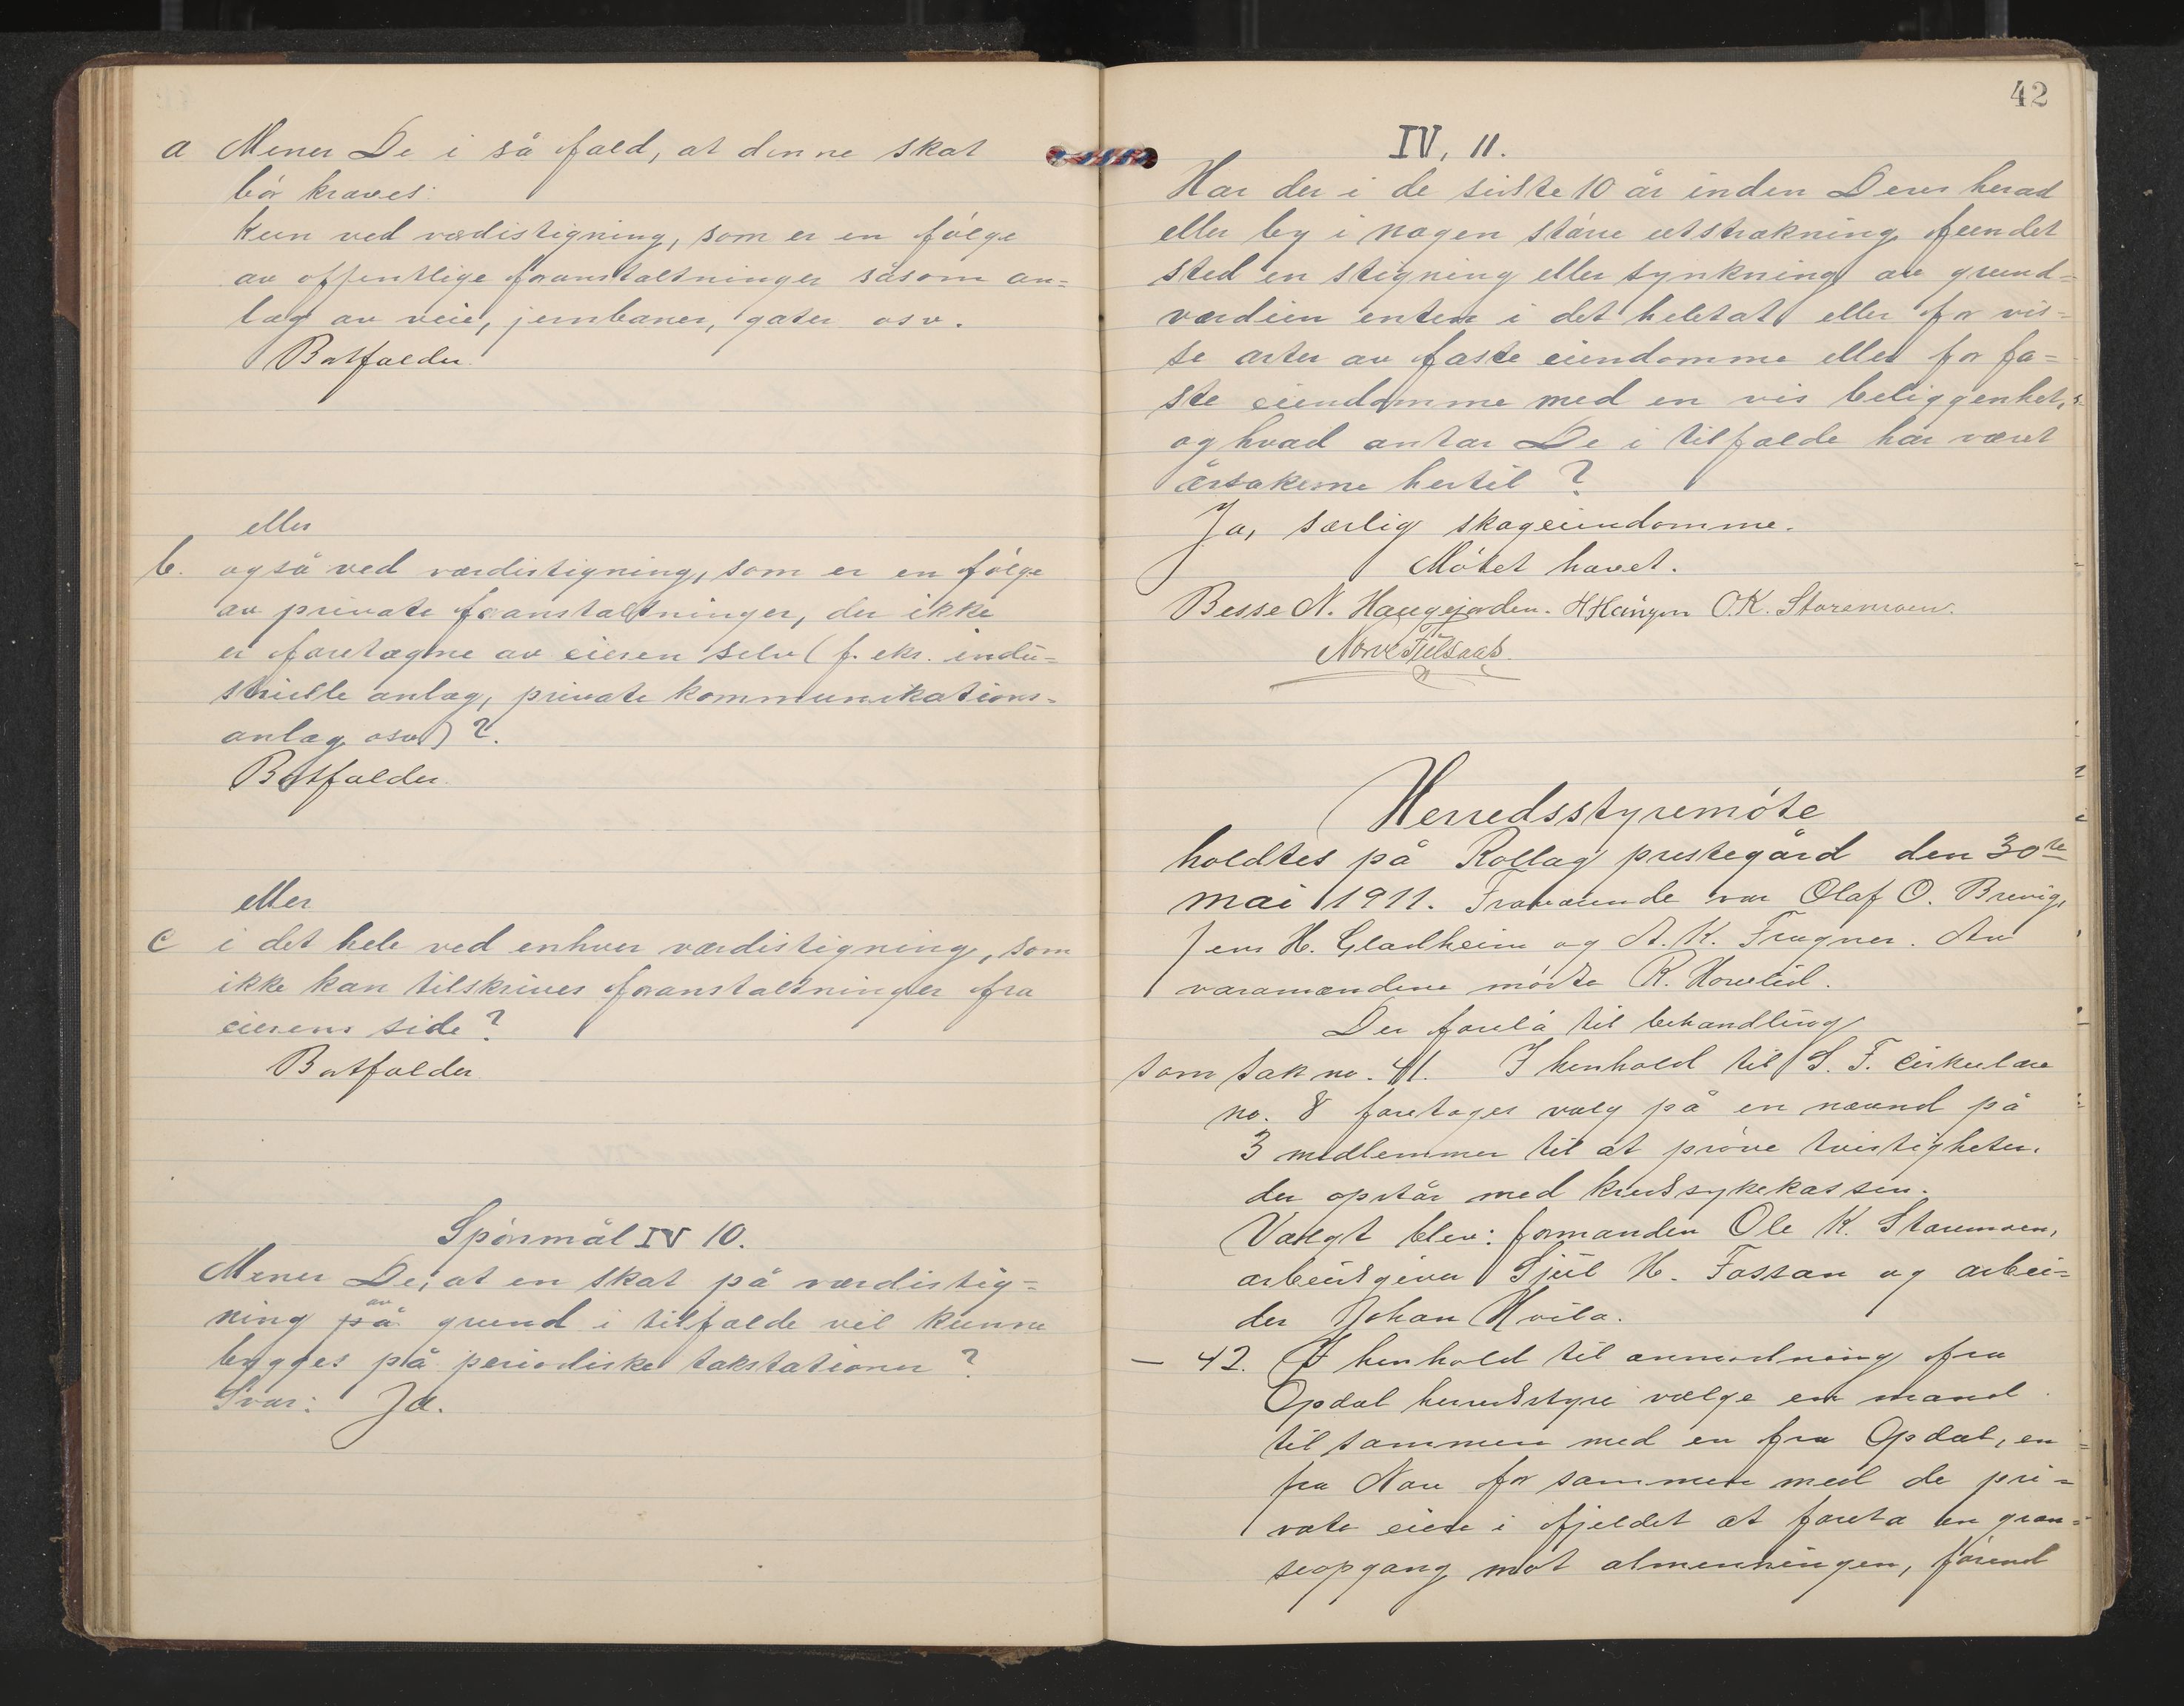 a Mener De i så fald, at denne skat
bör kræves:
Kun ved værdistigning, som er en fölge
av offentlige foranstaltninger såsom an=
læg av veie, jernbaner, gater osv.
Bortfalder.
eller
b. også ved værdistigning, som er en fölge
av private foranstaltninger, der ikke
er foretagne av eieren selv (f. eks. indu=
strielle anlæg, private kommunikations=
anlæg osv.)?
Bortfalder.
eller
c i det hele ved enhver værdistigning, som
ikke kan tilskrives foranstaltninger fra
eierens side?
Bortfalder
Spörsmål IV 10.
Mener De, at en skat på værdistig=
ning på av grund i tilfælde vil kunne
bygges på periodiske takstationer?
Svar: Ja.
42
IV, 11.
Har der i de sidste 10 år inden Deres herad
eller by i nogen större utstrækning fundet
sted en stigning eller synkning av grund=
værdien enten i det heletat eller for vis=
se arter av faste eiendomme eller for fa=
ste eiendomme med en vis beliggenhet,
og hvad antar De i tilfælde har været
årsakerne hertil?
Ja, særlig skogeiendomme.
Mötet hævet.
Besse N. Haugejorden. O.K. Storemoen.
Herredsstyremöte
holdtes på Rollag prestegård den 30te
mai 1911. Fraværende var Olaf O. Brevig,
Jens H. Gladheim og A. K. Fragner. Av
varamændene mödte R. Hovelid.
Der forelå til behandling
som sak no. 41. I henhold til S. F. cirkulære
no. 8 foretages valg på en nævnd på
3 medlemmer til at pröve tvistigheter.
der opstår med kredssykekassen.
Valgt blev: formanden Ole K. Storemoen,
arbeidsgiver Sjul H. Fossan og arbei=
der Johan Hvila.
— 42. I henhold til anmodning fra
Opdal herredsstyre vælge en mand
til sammen med en fra Opdal, en
fra Nore for sammen med de pri=
vate eiere i fjeldet at foreta en græn=
seopgang mot almenningen, förend